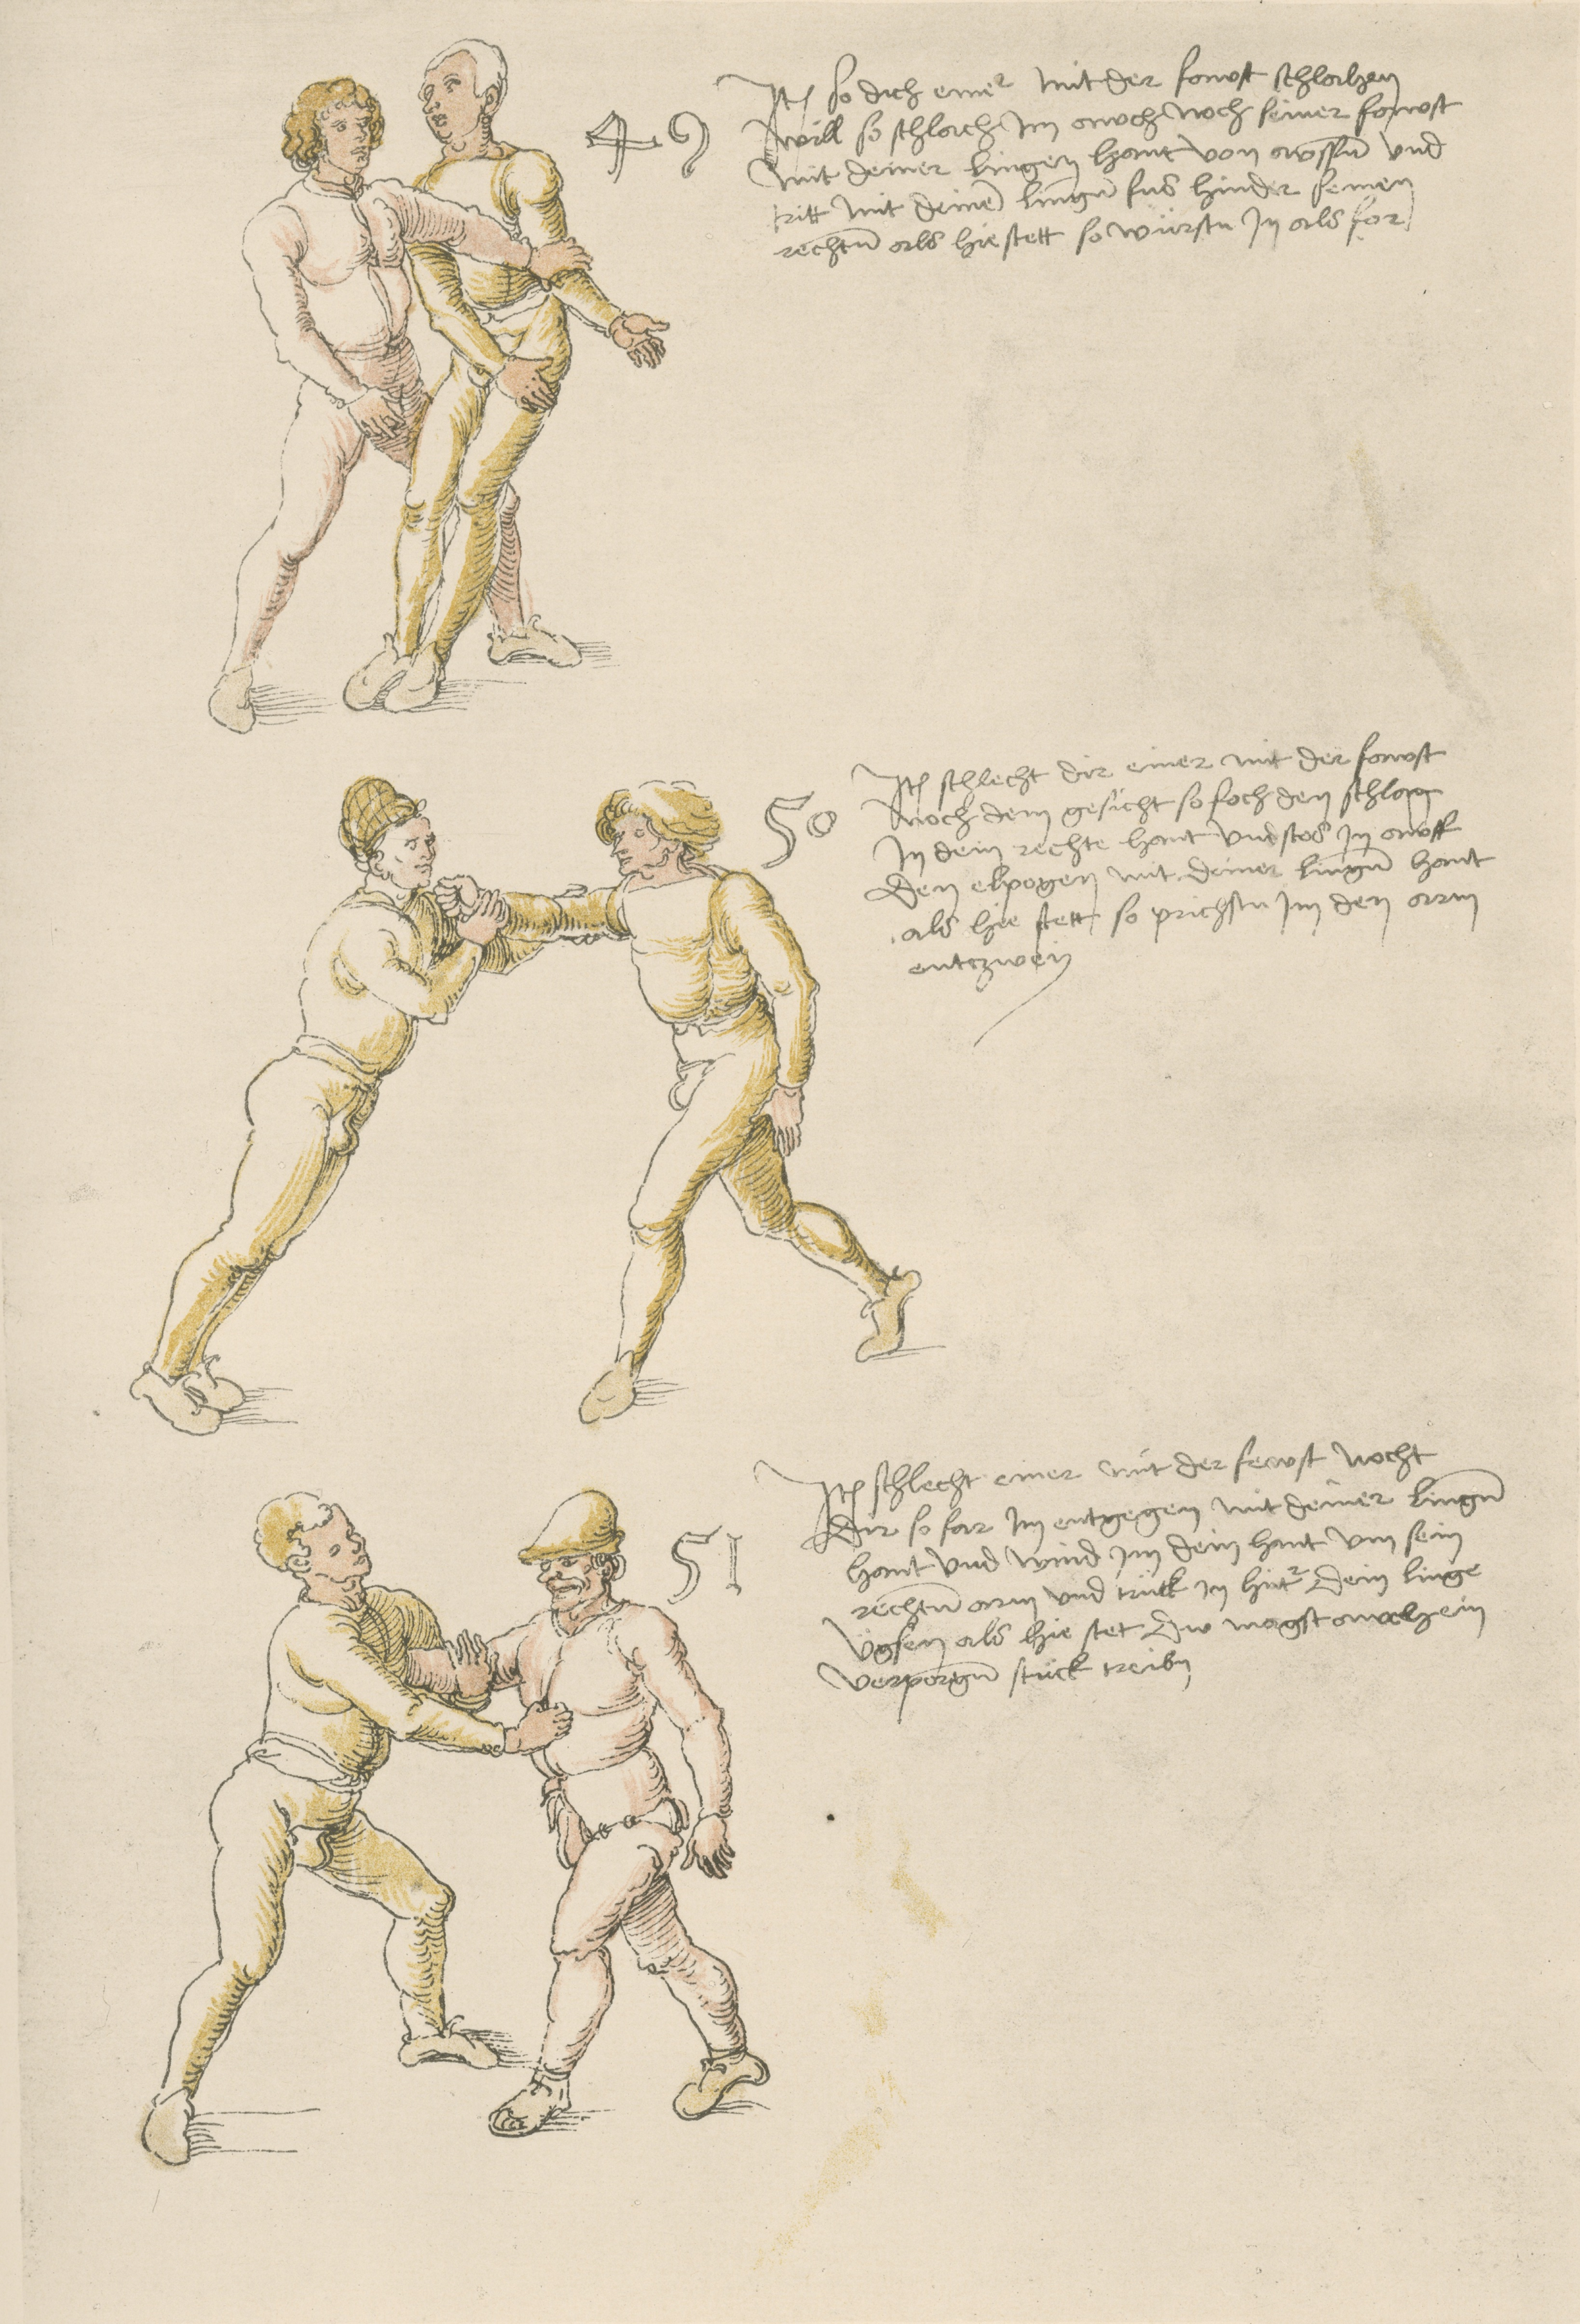 49
Itm so dich einer mit der fawst schlahen
will so schlach Im awch noch seiner fawst
mit deiner lingen hant von awssñ vnd
tritt mit deinẽ lingñ fus hinder seinen
rechtñ als hie stett so würfstu In als for
50
Itm schlecht dir einer mit der fawst
noch dem gesicht so foch den schlag
In dein rechte hant vnd stos In awff
den elpogen mit deiner lingñ hant
als hie stett so prichstu Im den arm
entczweÿ
51
Itm schlecht einer mit der fewst nocht
dir so far Im entgegen mit deiner lingñ
hant vnd wind Im dein hant vm sein
rechtñ arm vnd trück In hintr dein linge
vgsen als hie stet Dw magst awch ein
verporgñ stück treibn